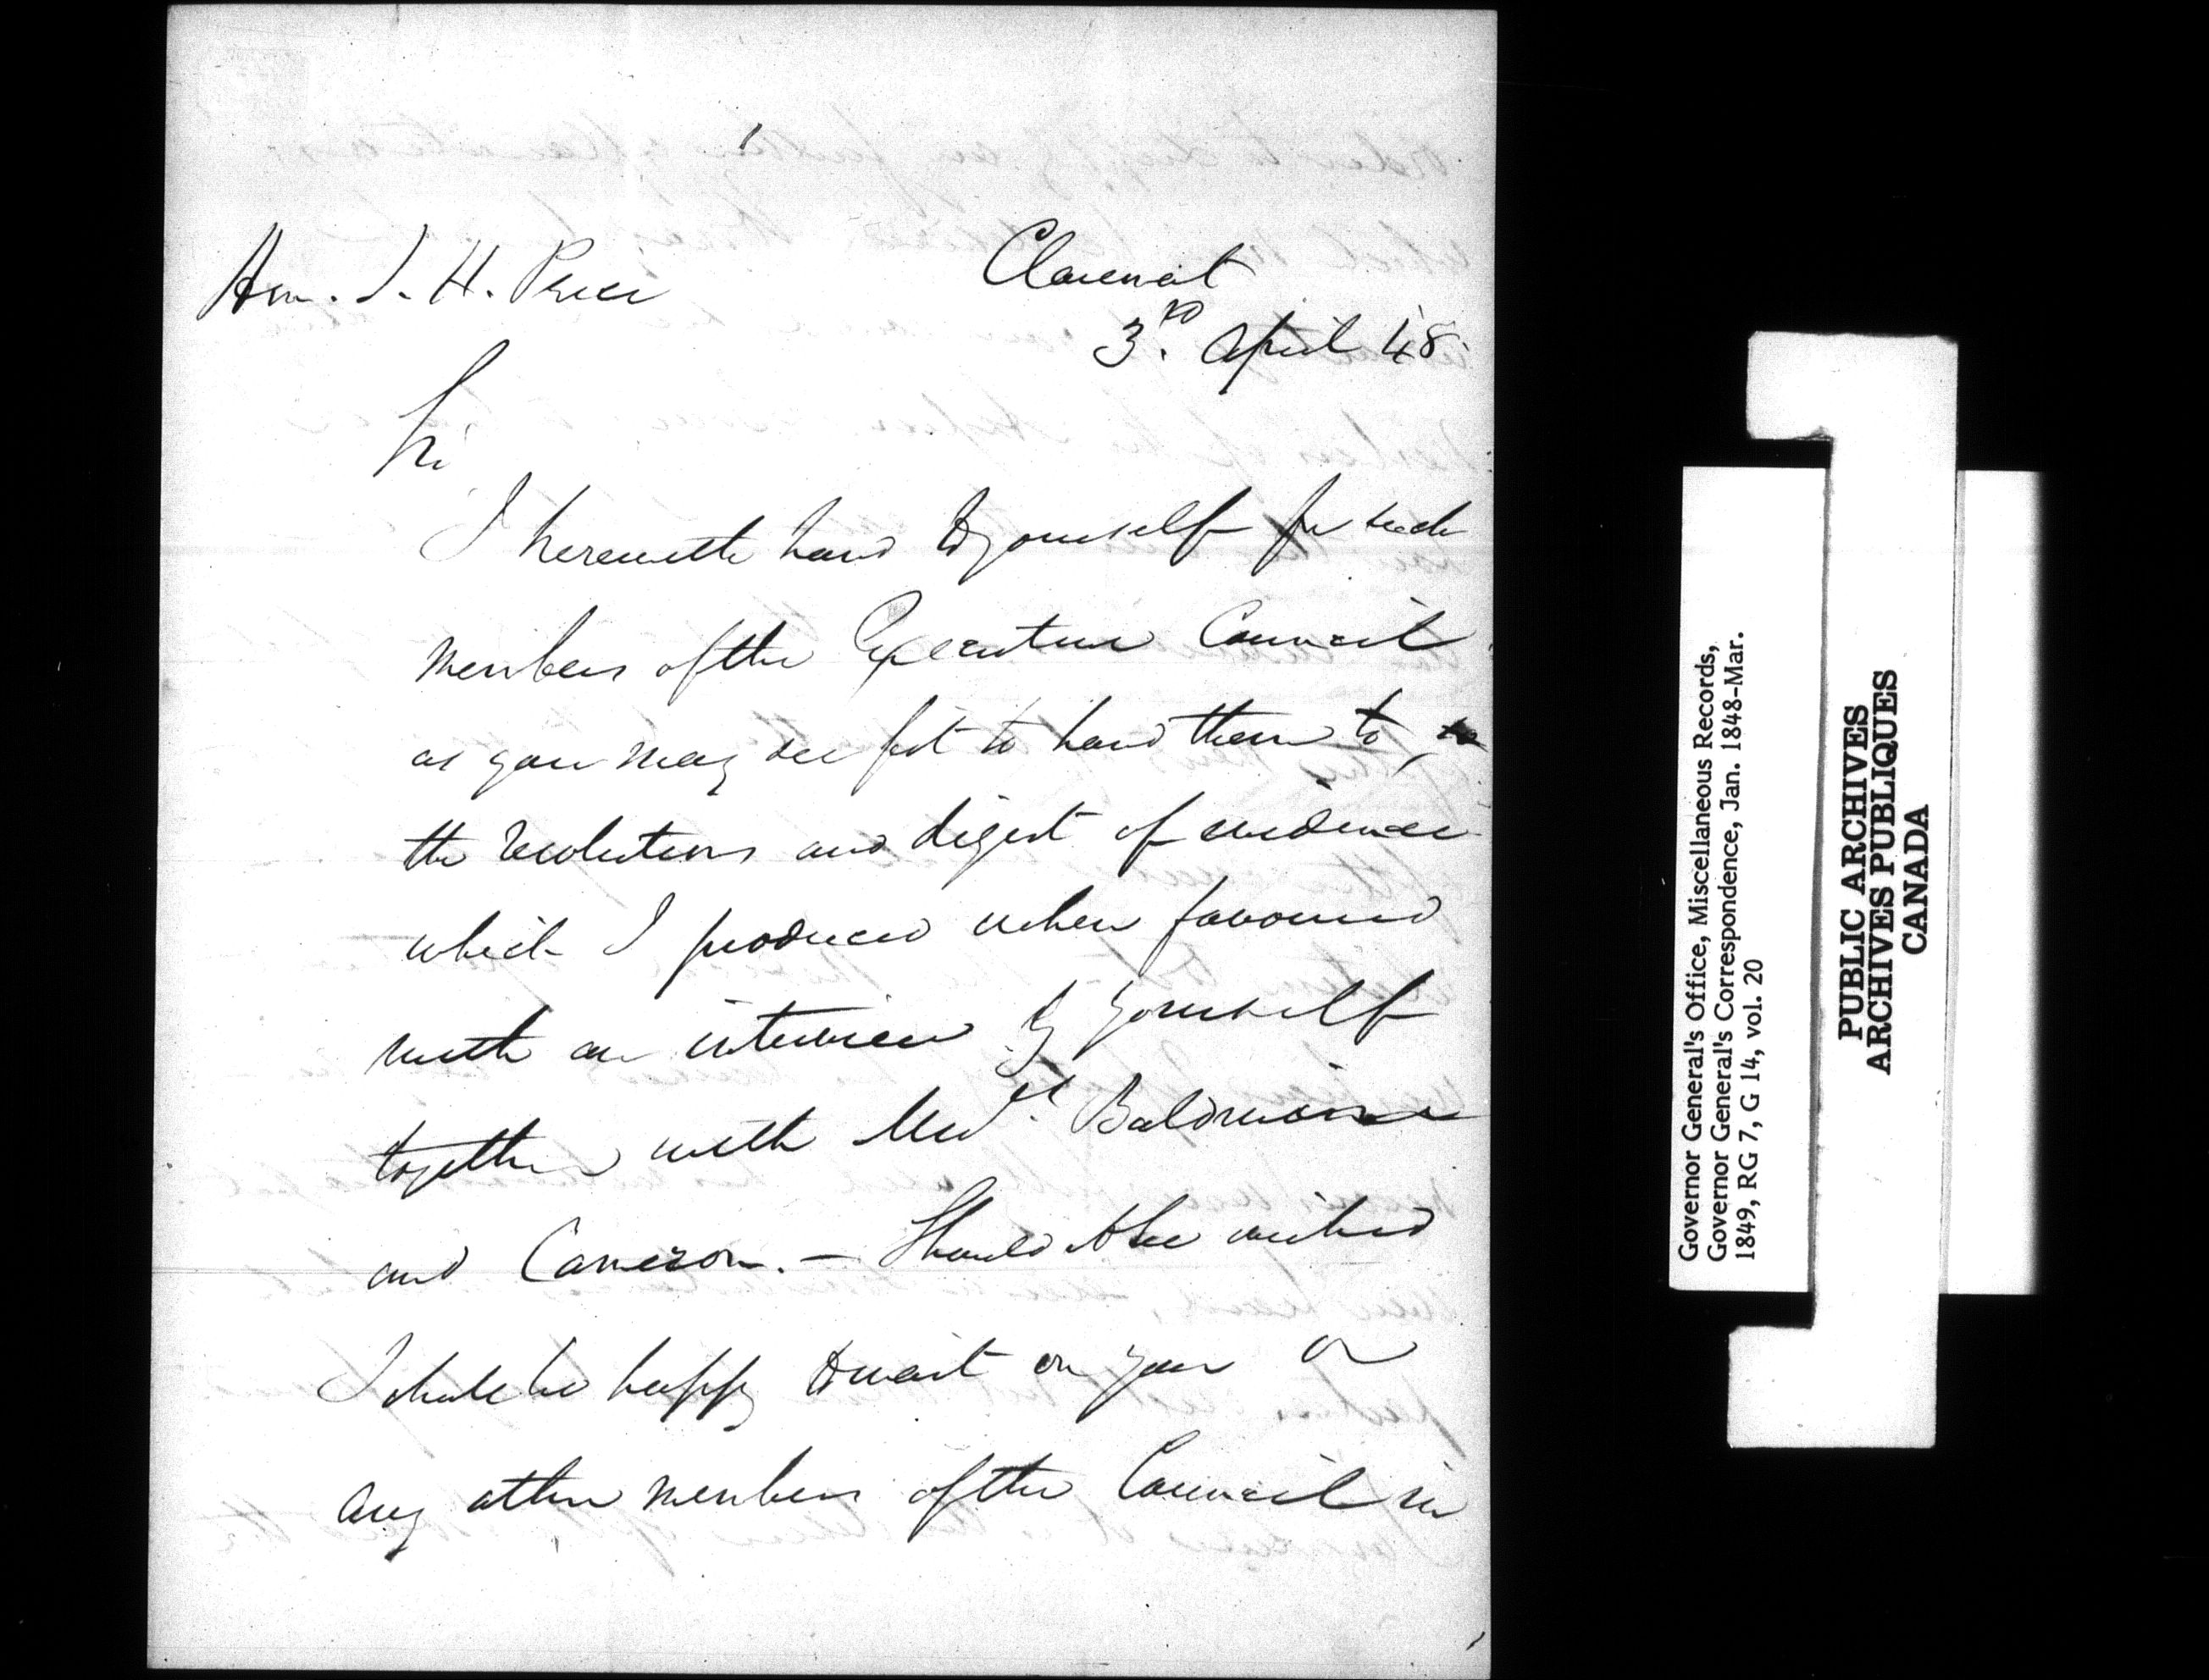 Hon. J. H. Price
Claremont
3.rd April 48.
Sir
I herewith hand to yourself for such
members of the Executive Council
as you may see fit to hand them to,
the resolutions and digest of evidence
which I produced when favoured
with an interview by yourself
together with Baldwin
and Cameron. – Should it be wished
I shall be happy to wait on you or
any other members of the Council in
Governor General's Office, Miscellaneous Records,
Governor General's Correspondence, Jan. 1848-Mar.
1849, RG 7, G 14, vol. 20
PUBLIC ARCHIVES
ARCHIVES PUBLIQUES
CANADA